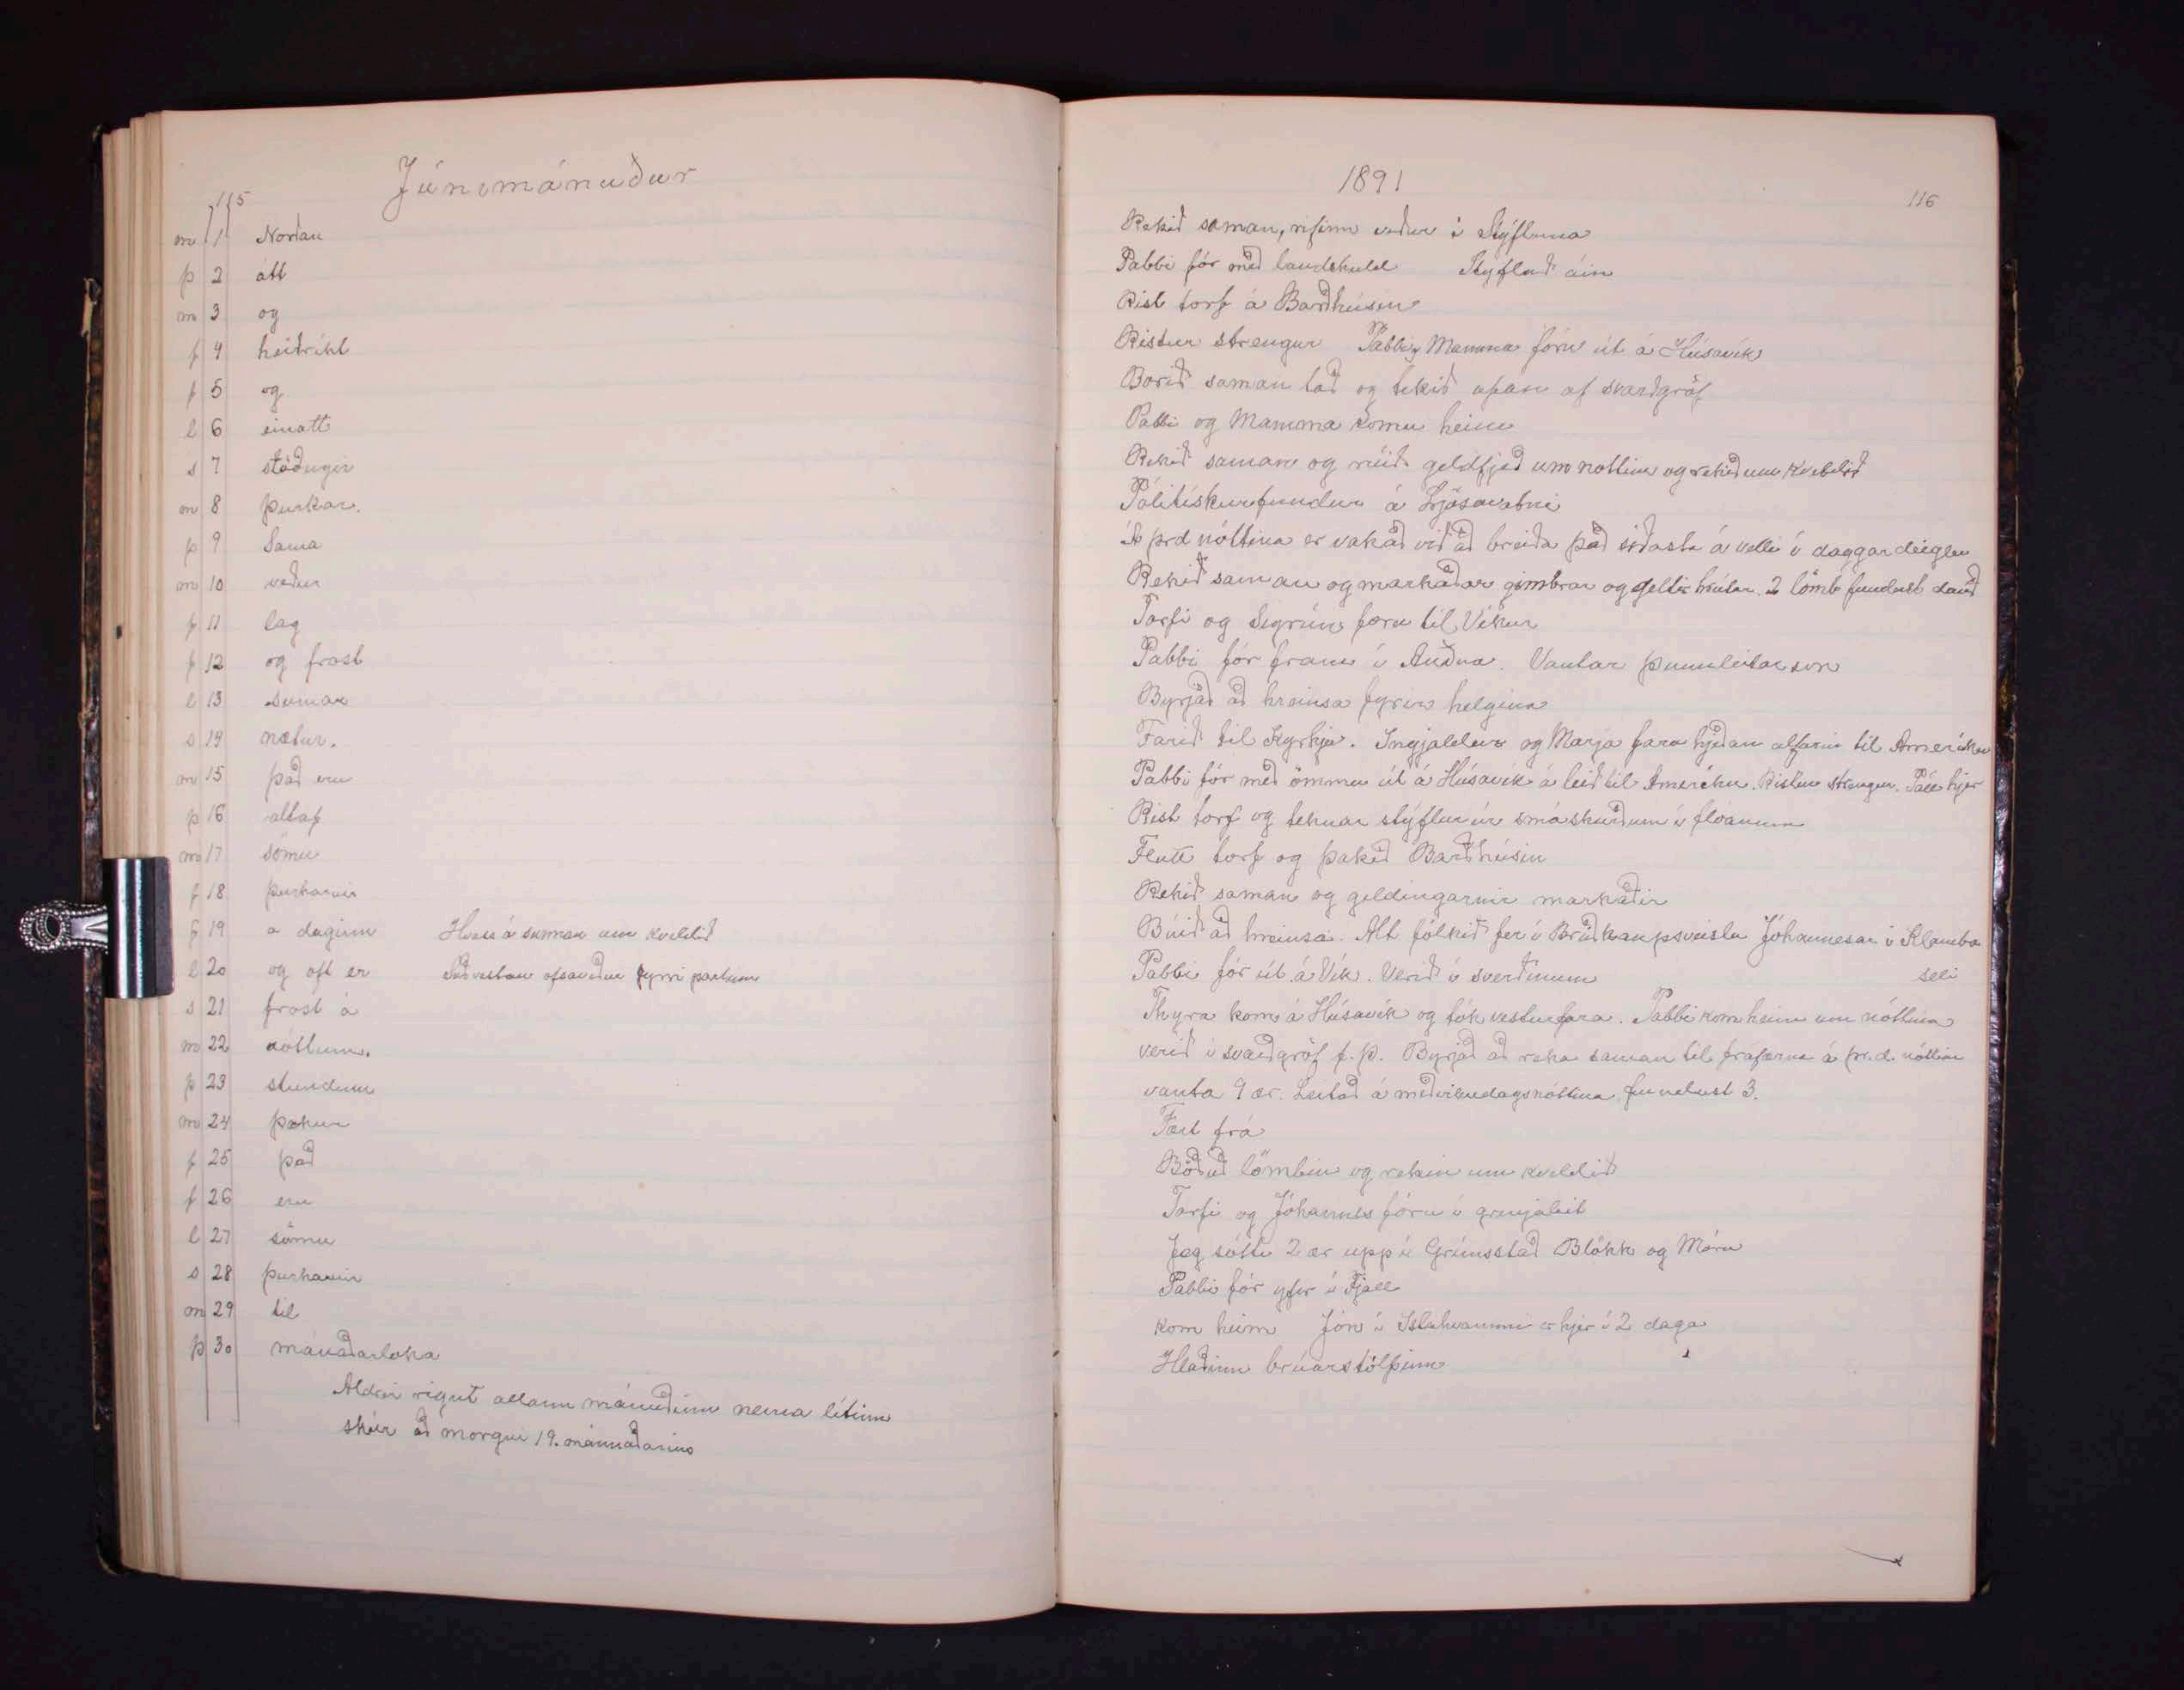 115
Júnímánuður
m 1 Norðan
þ 2 átt
m 3 og
f 4 heiðríkt
f 5 og
l 6 einatt
s 7 stöðugir
m 8 þurkar.
þ 9 Sama
m 10 veður
f 11 lag
f 12 og frost
l 13 sumar
s 14 nætur.
m 15 það eru
þ 16 altaf
m 17 sömu
f 18 þurkarnir
f 19 á daginn Hvass á sunnan um kveldið
l 20 og oft er Suðvestan ofsaveður fyrri partinn
s 21 frost á
m 22 nóttum.
þ 23 stundum
m 24 þokur
f 25 það
f 26 eru
l 27 sömu
s 28 þurkarnir
m 29 til
þ 30 mánaðarloka
Aldrei rignt allann mánuðinn nema lítinn
skúr að morgni 19. mánaðarins
1891
116
Rekið saman, rifinn viður í Stýfluna
Pabbi fór með landskuld Stýflað áin
Rist torf á Barðhúsin
Ristur strengur Pabbi og Mamma fóru út á Húsavík
Borið saman tað og tekið ofan af svarðgröf
Pabbi og Mamma komu heim
Rekið saman og rúið geldfjeð um nóttina og rekið um kveldið
Pólitískurfundur á Ljósavatni
Á þrd nóttina er vakað við að breiða það síðasta á velli í daggar deiglu
Rekið saman og markaðar gimbrar og geltir hrútar. 2 lömb fundust dauð
Torfi og Sigrún foru til Víkur
Pabbi fór fram í Auðna. Vantar þumleitan son
Byrjað að hreinsa fyrir helgina
Farið til Kyrkju. Ingjaldur og Marja fara hjeðan alfarin til Ameríku
Pabbi fór með ömmu út á Húsavík á leið til Ameríku. Ristur strengur. Páll hjer
Rist torf og teknar stýflur úr smáskurðum í flóanum
Flutt torf og þakið Barðhúsin
Rekið saman og geldingarnir markaðir
Búið að hreinsa. Alt fólkið fer í Brúðkaupsveislu Jóhannesar í Klamba
seli
Pabbi fór út á Vík. Verið í sverðinum
Thyra kom á Húsavík og tók vesturfara. Pabbi kom heim um nóttina
verið í svarðgröf f.p. Byrjað að reka saman til fráfærna á þr.d. nóttina
vanta 9 ær. Leitað á miðvikudagsnóttina fundust 3.
Fært frá
Böðuð lömbin og rekin um kveldið
Torfi og Jóhannes fóru í grenjaleit
Jeg sótti 2 ær upp í Grímsstað Blökk og Móru
Pabbi fór yfir í Fjall
kom heim Jón í Ystahvammi er hjer í 2 daga
Hlaðinn brúarstólpinn